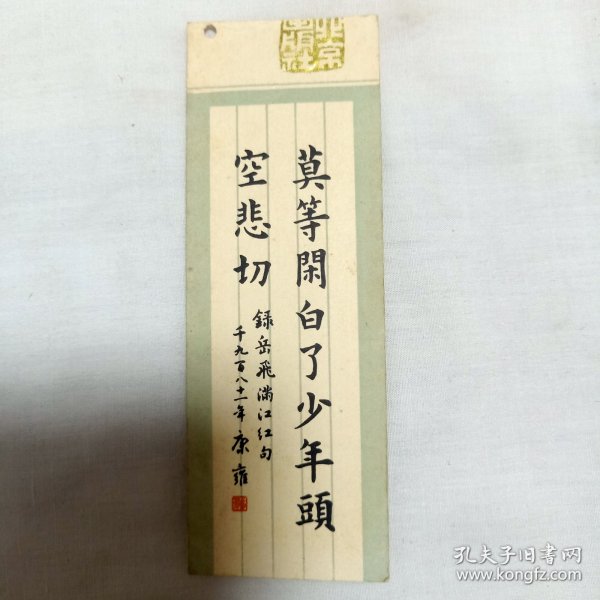 北京
出版社
莫等閑白了少年頭
空悲切
録岳飛滿江紅句
千九百八十一年康雍
孔夫子旧书网
www.kongfz.com